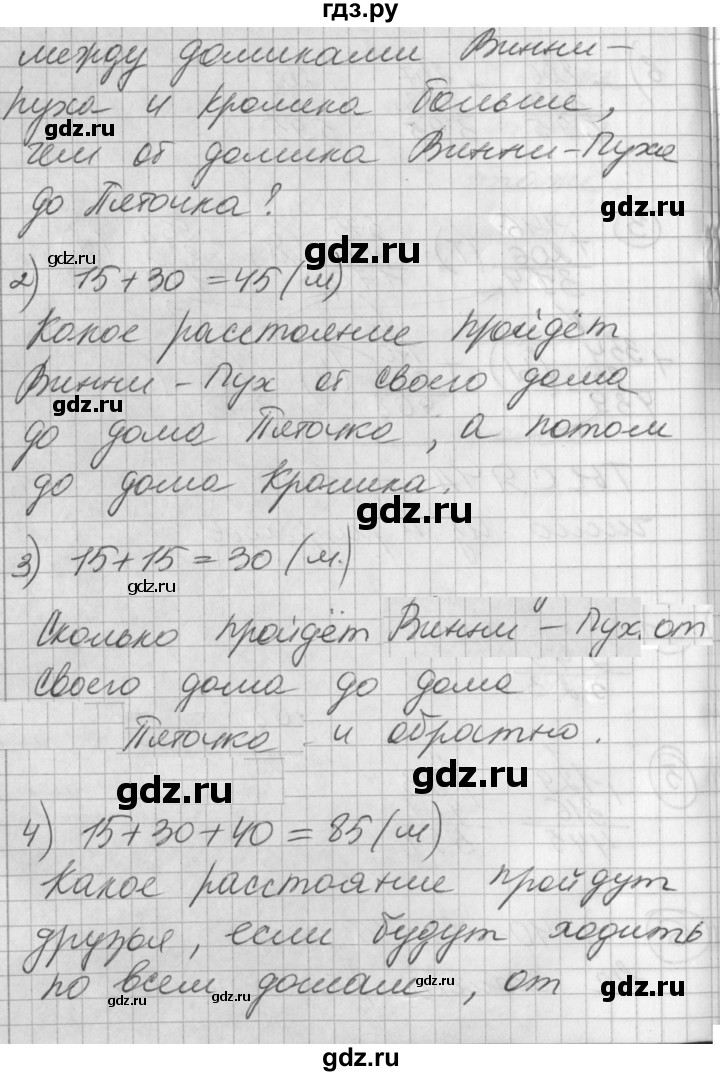 гдз.ру
между домиками Винни-
пуха и Кролика больше,
gdz.ru
чем от домика Винни-Пуха
до Пяточка?
gdz.ru
gdz.ru
gdz.ru
2) 15+30=45(м)
Какое расстояние пройдёт
Винни-Пух от своего дома
gdz.ru
до дома Пяточка, а потом
до дома Кролика.
gdz.ru
3) 15+15=30(м.)
gdz.ru
Сколько пройдёт Винни"-Пух от
своего дома до дома
Пяточка и обратно.
gdz.ru
gdz.ru
4) 15+30+40=85(м)
Какое расстояние пройдут
друзья, если будут ходить
по всем домам, от
gdz.ru
gdz.ru
gdz.ru
gdz.ru
gdz.ru